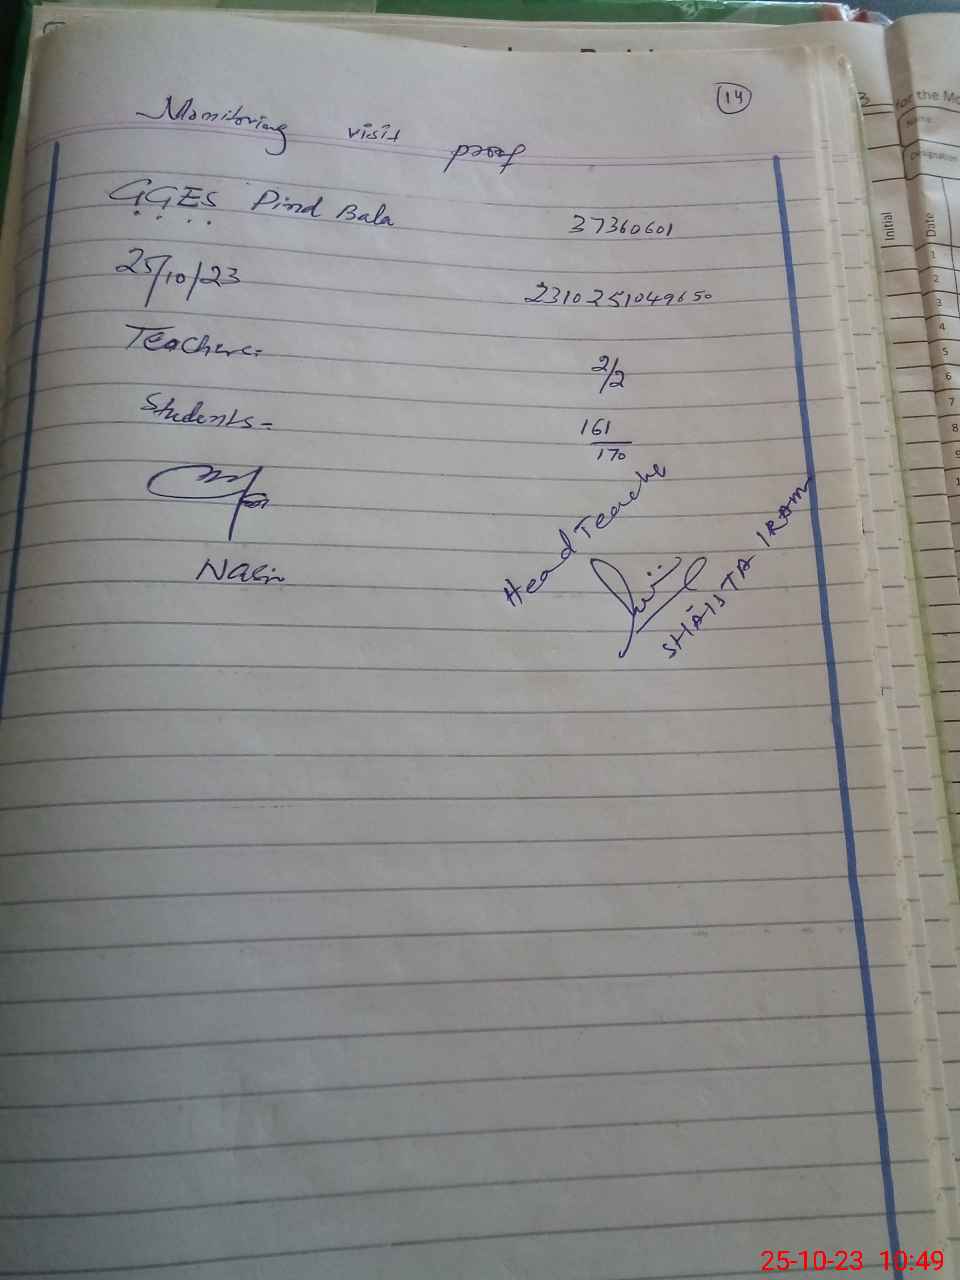 14
Monitoring visit proof
GGES Pind Bala 37360601
25/10/23 2310251049650
Teachers- 2/2
Students- 161/170
Head Teacher
SHAISTA IRAM
for the Mo
Name:
Designation
Initial
Date
1
2
3
4
5
6
7
8
9
1
25-10-23 10:49